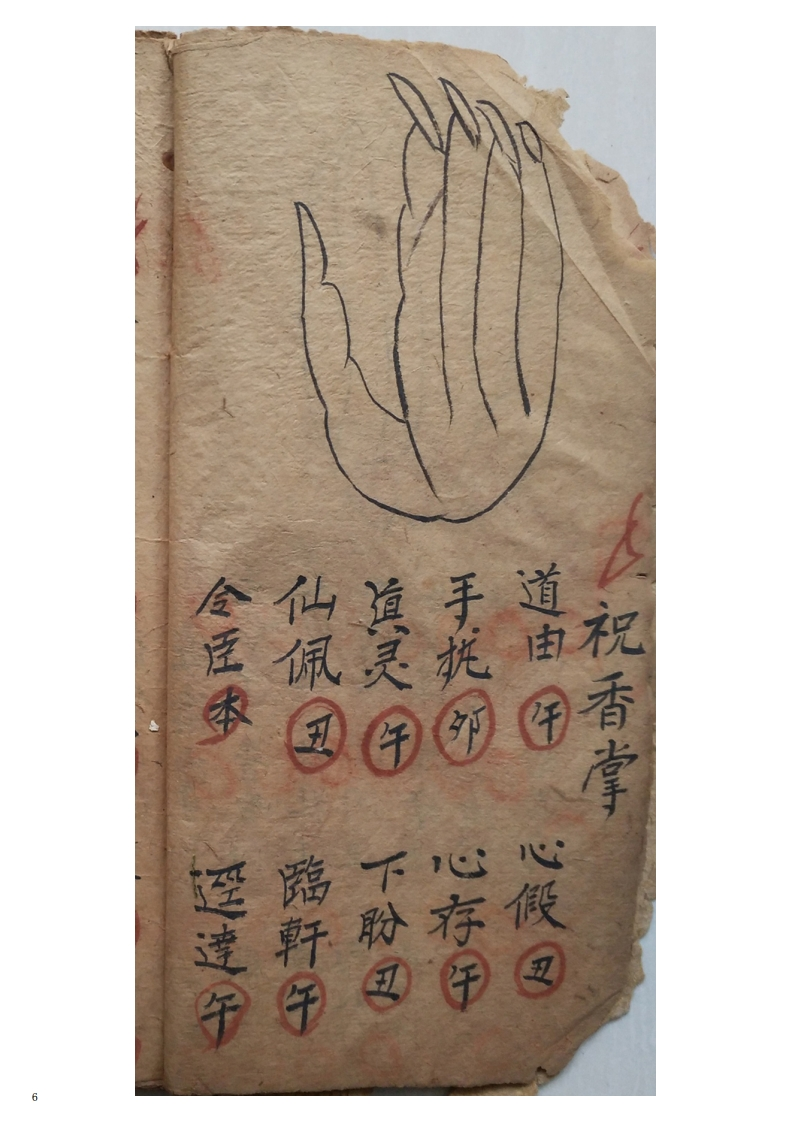 祝香掌
道由午 心假丑
手执夘 心存午
眞灵午 下盼丑
仙佩丑 臨軒午
令臣本 逕達午
6